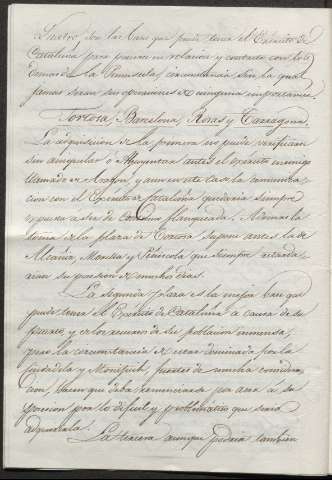 Cuatro son las bases que puede tener el Ejército de
Cataluña para ponerse en relacion y contacto con los
demas de la Peninsula, circunstancia sin la qual
jamas seran sus operaciones de ninguna importancia.
Tortosa, Barcelona, Rosas y Tarragona
La adquisicion de la primera no puede verificarse
sin aniquilar o ahuyentar antes el ejército enemigo
llamado de Aragon, y aun en este caso la comunica-
cion con el Ejercito de Cataluña quedaria siempre
expuesta a ser de continuo flanqueada. Ademas la
toma de la plaza de Tortosa supone antes la de
Alcañiz, Morella y Peñiscola que siempre retarda-
rian su posesion de muchos dias.
La segunda plaza es la mejor base que
puede tener el Ejército de Cataluña a causa de su
puerto, y de los recursos de su poblacion inmensa,
pero la circunstancia de estar dominada por la
Ciudadela y Monjuich, fuertes de mucha considera-
cion, hacen que deba renunciarse por aora á su
posesion por lo dificil y problematico que seria
adquirirla.
La tercera aunque podria tambien